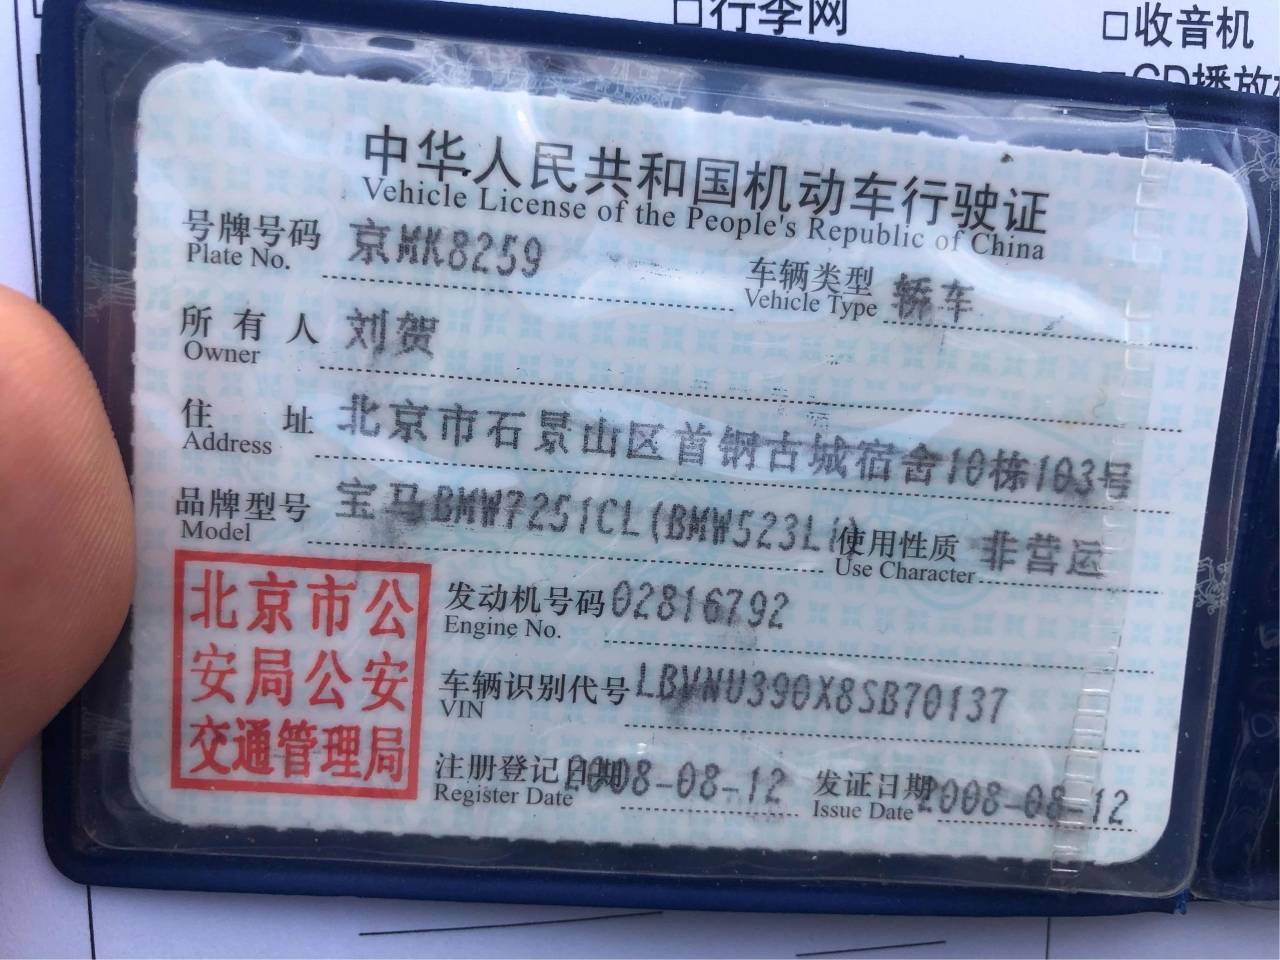 □行李网
□收音机
□CD播放
中华人民共和国机动车行驶证
Vehicle License of the People's Republic of China
号牌号码 京MK8259 车辆类型 轿车
Plate No. Vehicle Type
所有人 刘贺
Owner
住址 北京市石景山区首钢古城宿舍10栋103号
Address
品牌型号 宝马BMW7251CL(BMW523Li) 使用性质 非营运
Model Use Character
北京市公
安局公安
交通管理局
发动机号码 02816792
Engine No.
车辆识别代号 LBVNU390X8SB70137
VIN
注册登记日期 2008-08-12 发证日期 2008-08-12
Register Date Issue Date